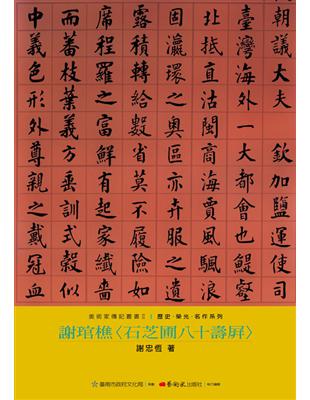 朝議大夫 欽加鹽運使司
臺灣海外一大都會也鯤
北抵直沽閩商海賈風
固瀛環之奧區亦卉服之遺
露積轉給數省莫不履險如
席程羅之富鮮有起家
而蕃枝葉義方垂訓式穀似
中義色形外尊親之戴冠血
美術家傳記叢書II|歷史·榮光·名作系列
謝琯樵〈石芝圃八十壽屏〉
謝忠恆 著
臺南市政府文化局 藝術家出版社